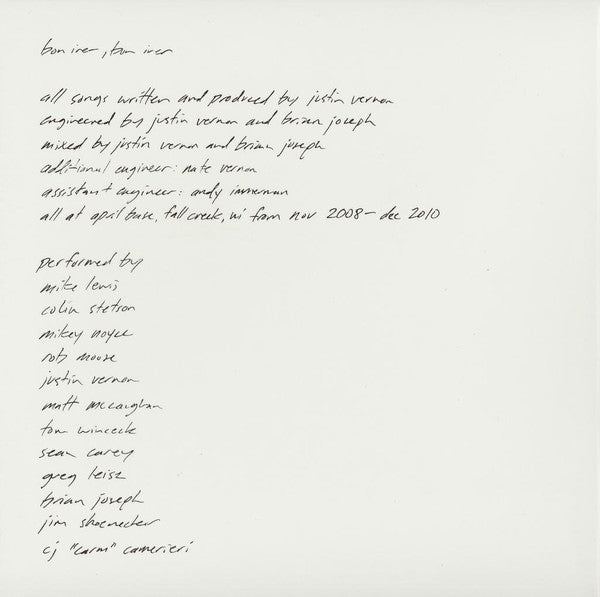 bon iver, bon iver
all songs written and produced by justin vernon
engineered by justin vernon and brian joseph
mixed by justin vernon and brian joseph
additional engineer: nate vernon
assistant engineer: andy immerman
all at april base, fall creek, wi from nov 2008 - dec 2010
performed by
mike lewis
colin stetson
mikey noyce
rob moose
justin vernon
matt mccaughan
tom wincek
sean carey
greg leisz
brian joseph
jim shoenecker
cj "carm" camerieri